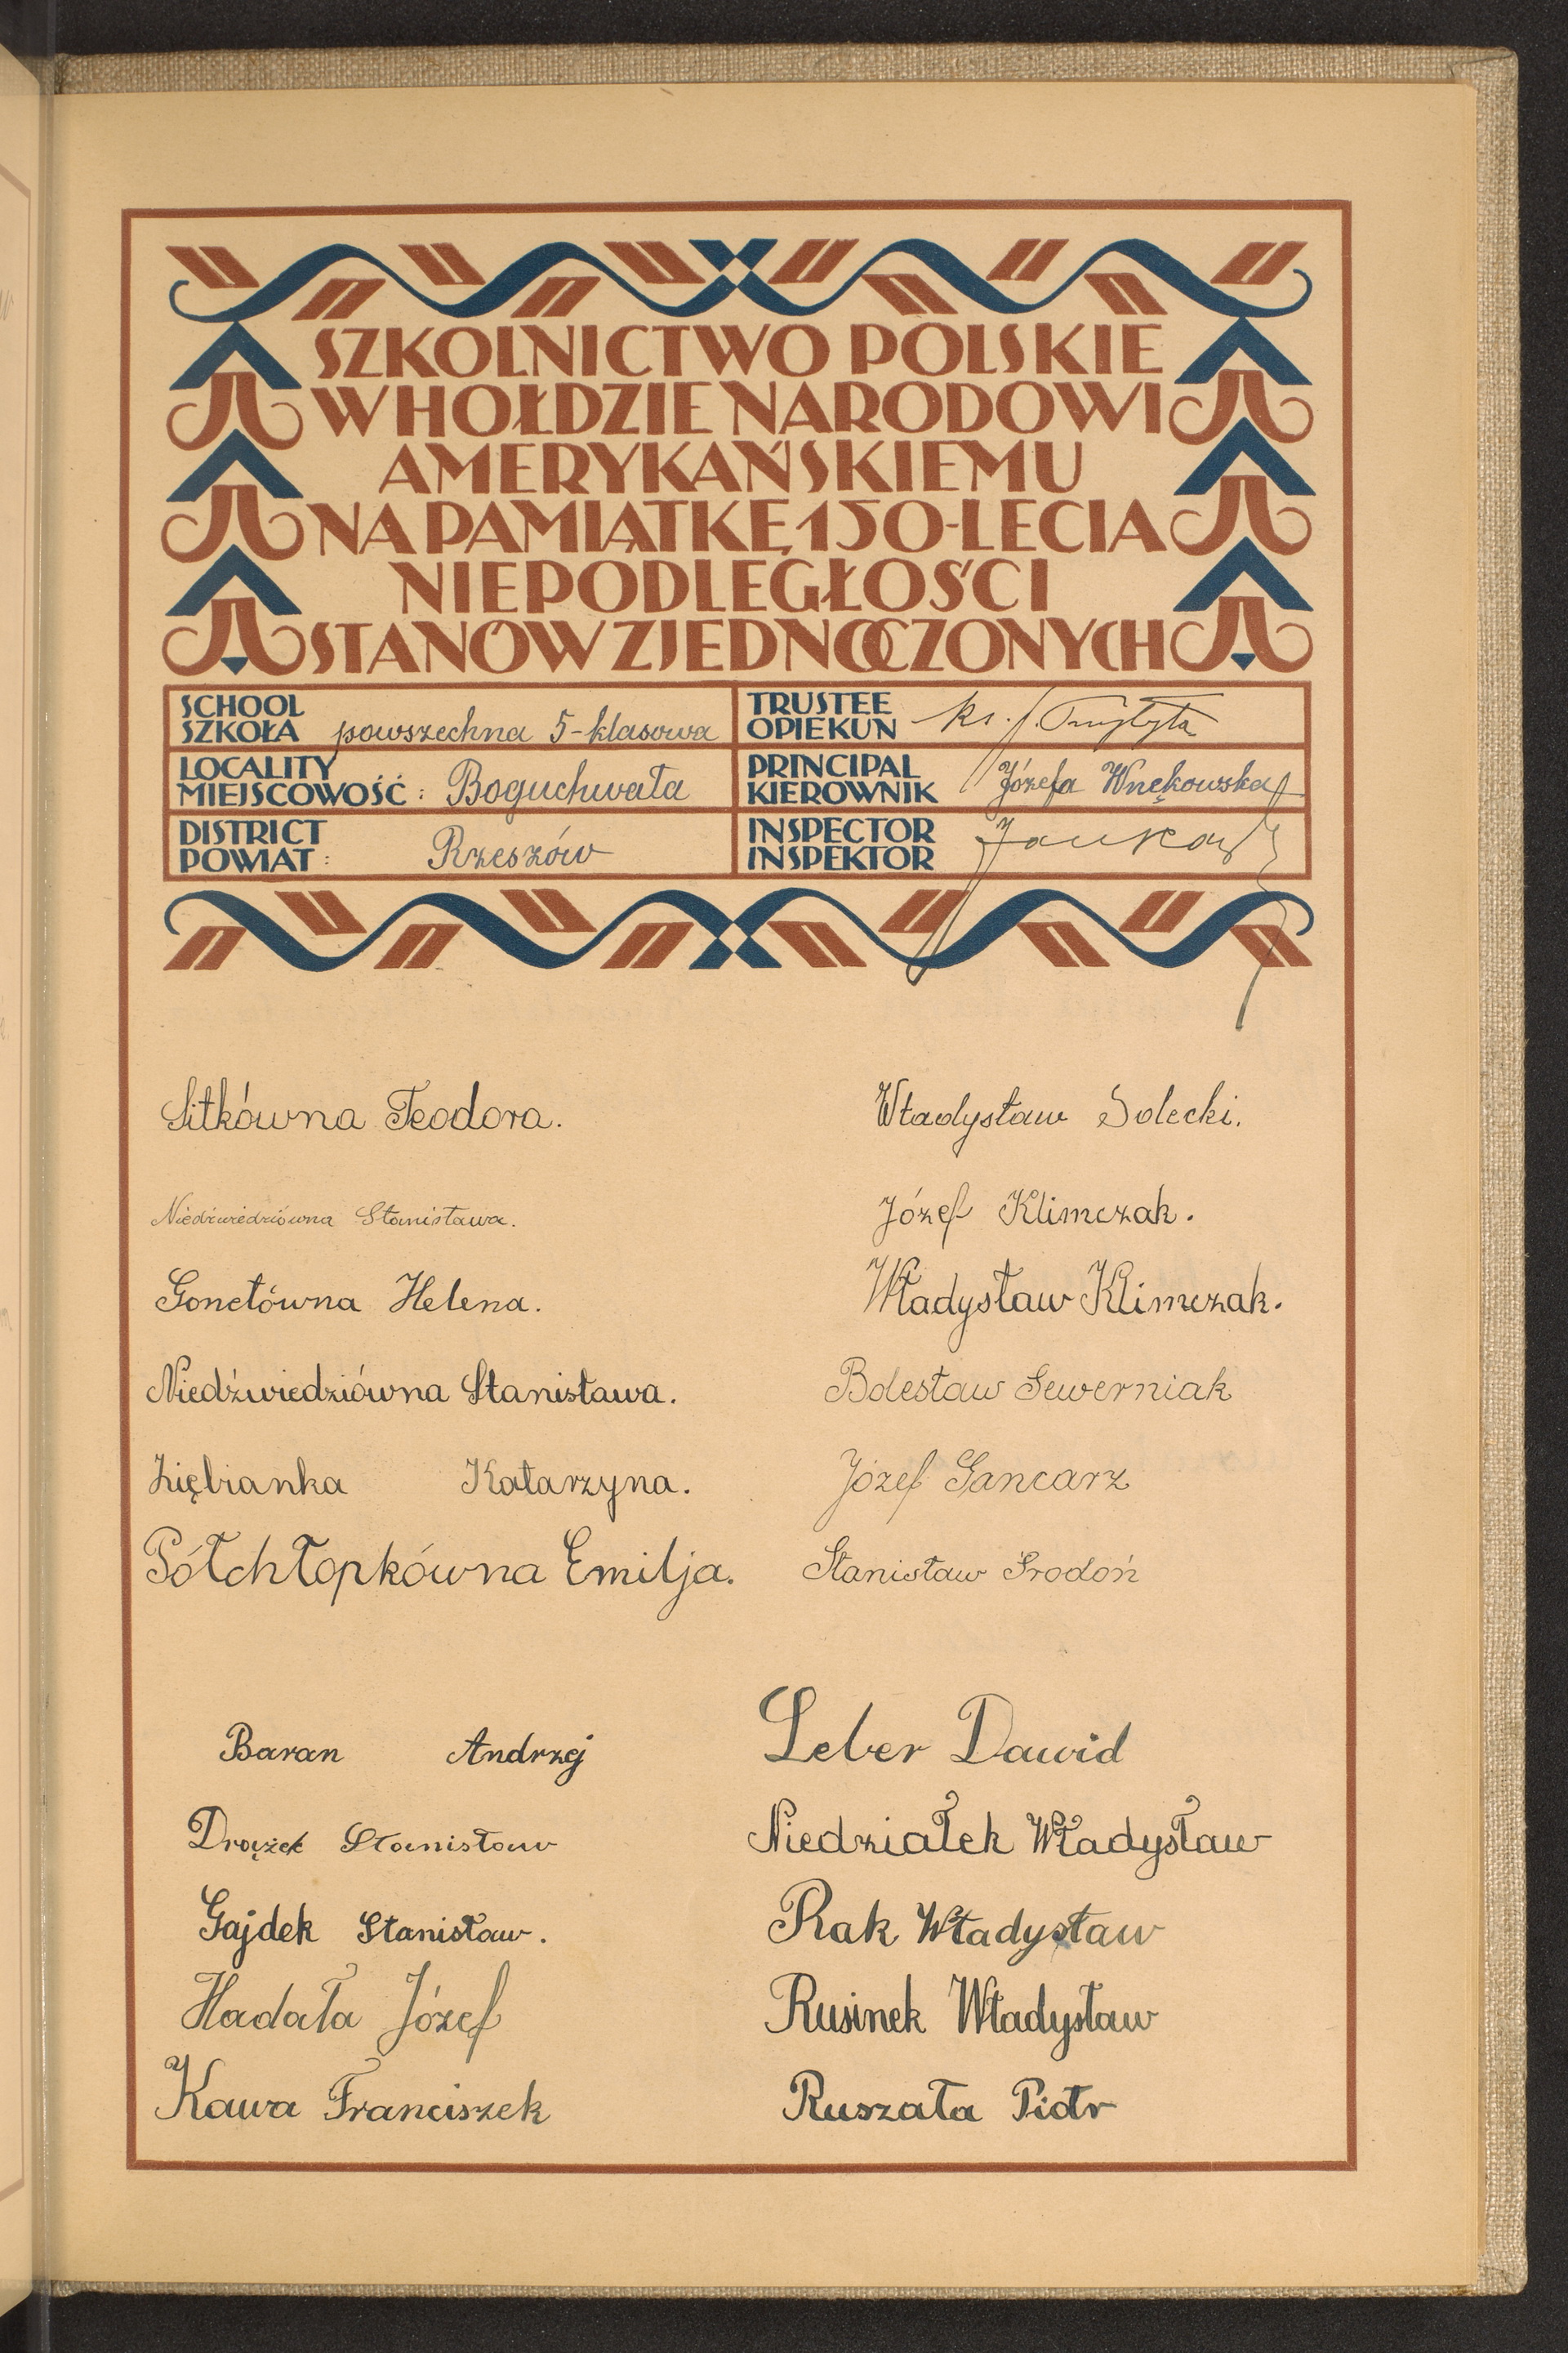 SZKOLNICTWO POLSKIE
W HOŁDZIE NARODOWI
AMERYKAŃSKIEMU
NA PAMIĄTKĘ 150-LECIA
NIEPODLEGŁOŚCI
STANÓW ZJEDNOCZONYCH
SCHOOL
SZKOŁA powszechna 5-klasowa
TRUSTEE
OPIEKUN ks. J.
LOCALITY
MIEJSCOWOŚĆ: Boguchwała
PRINCIPAL
KIEROWNIK Józefa Wnękowska
DISTRICT
POWIAT: Rzeszów
INSPECTOR
INSPEKTOR
Sitkówna Teodora.
Niedźwiedziówna Stanisława.
Gonetówna Helena.
Niedźwiedziówna Stanisława.
Ziębianka Katarzyna.
Półchłopkówna Emilja.
Władysław Solecki.
Józef Klimczak.
Władysław Klimczak.
Bolesław Sewerniak
Józef Gancarz
Stanisław Środoń
Baran Andrzej
Drążek Stanisław
Gajdek Stanisław.
Hadała Józef
Kawa Franciszek
Leber Dawid
Niedziałek Władysław
Rak Władysław
Rusinek Władysław
Ruszała Piotr